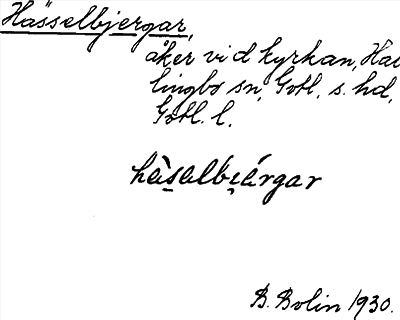 Hasselbjergar,
åker vid kyrkan, Hab
lingbo sn, Gotl. s. hd,
Gotl. l.
hàsalbjärgar
B. Bolin 1930.